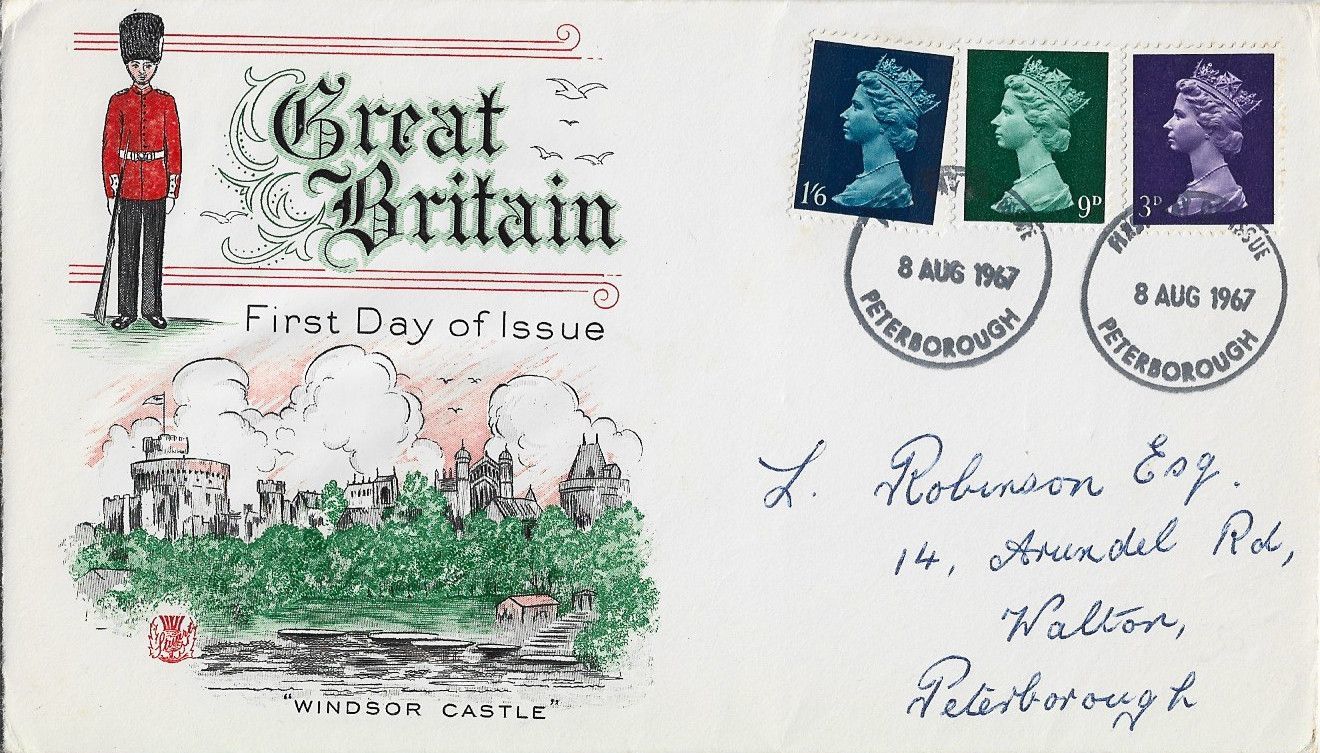 Great
Britain
First Day of Issue
"WINDSOR CASTLE"
1'6
9D
3D
8 AUG 1967
PETERBOROUGH
ISSUE
8 AUG 1967
PETERBOROUGH
L. Robinson Esq.
14, Arundel Rd,
Walton,
Peterborough